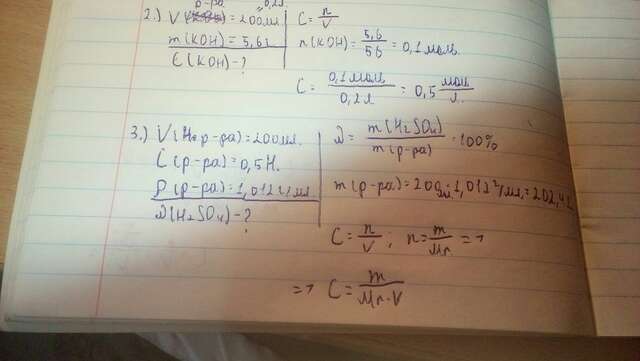 р-ра 0,2л
2.) V (KOH) = 200мл
m(KOH) = 5,6г
C(KOH) - ?
C = n/V
n(KOH) = 5,6/56 = 0,1 моль
C = 0,1 моль/0,2 л = 0,5 моль/л.
3.) V(р-ра) = 200мл.
C(р-ра) = 0,5Н.
ρ(р-ра) = 1,012 г/мл.
ω(H₂SO₄) - ?
ω = m(H₂SO₄)/m(р-ра) · 100%
m(р-ра) = 200мл · 1,012 г/мл = 202,4г
C = n/V ; n = m/Mr =>
=> C = m/Mr·V